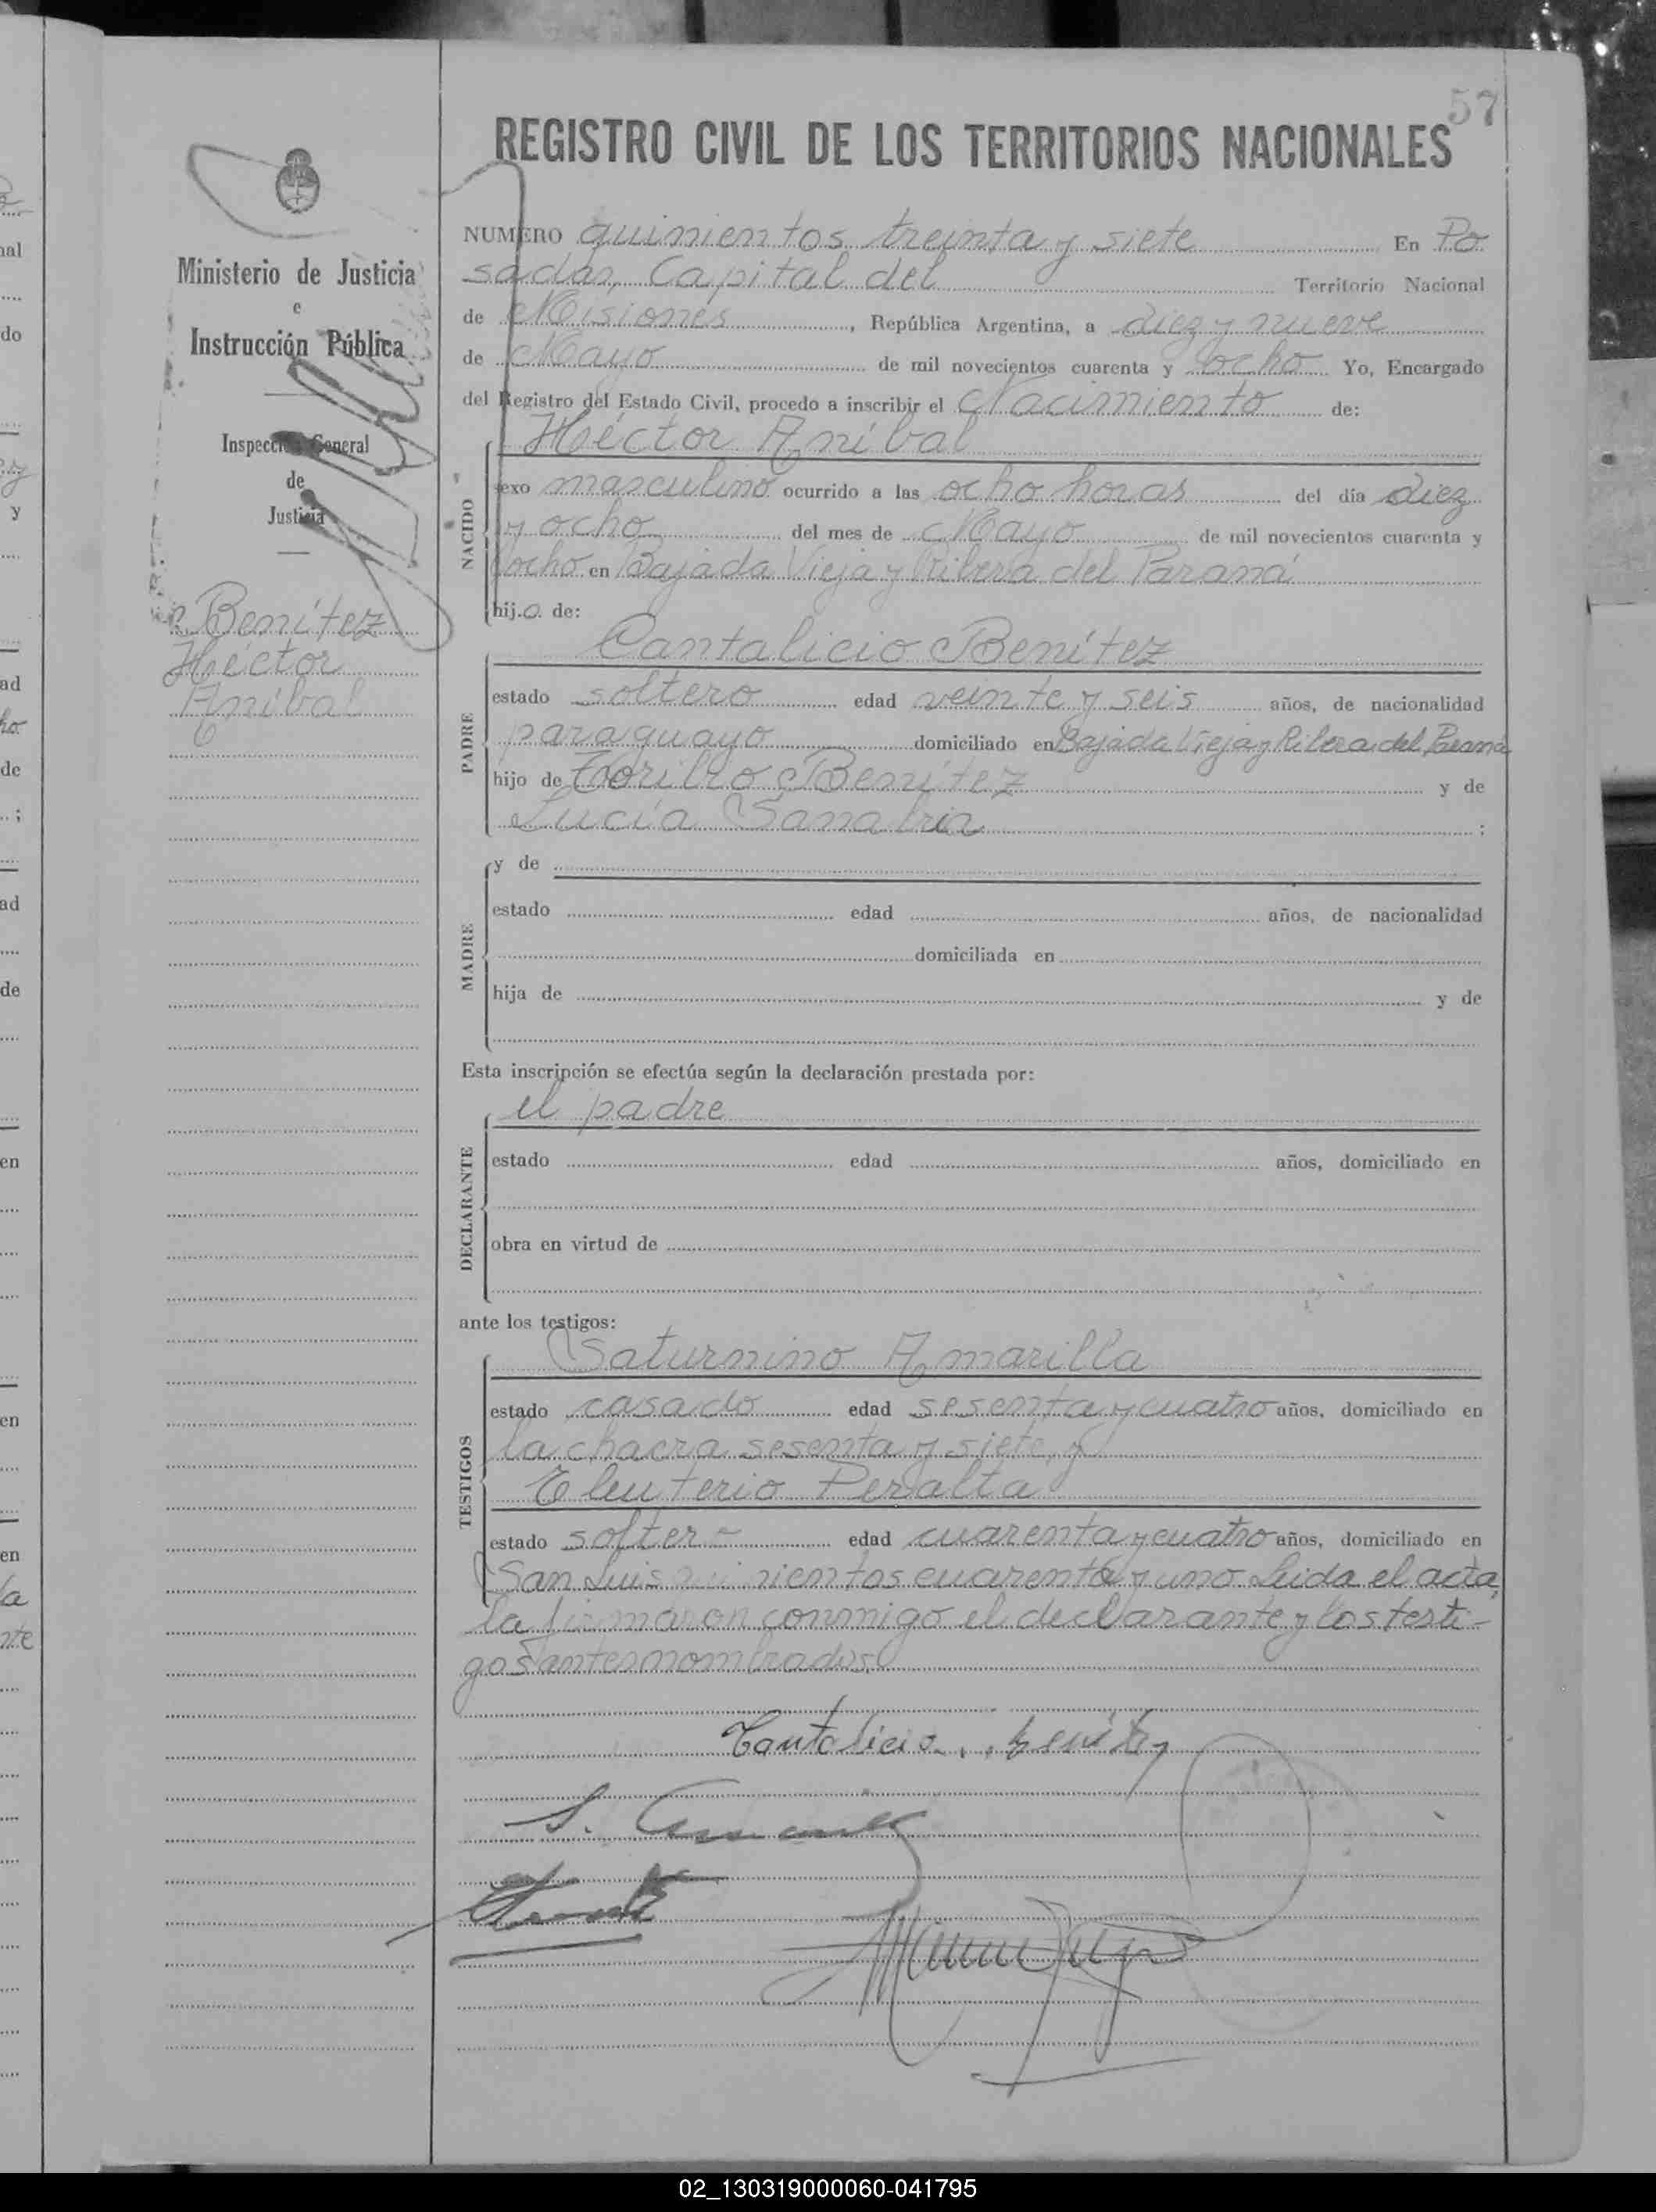 57
REGISTRO CIVIL DE LOS TERRITORIOS NACIONALES
Ministerio de Justicia
e
Instrucción Pública
Inspección General
de
Justicia
Benítez
Héctor
Aníbal
NUMERO quinientos treinta y siete En Po
sadas, Capital del Territorio Nacional
de Misiones, República Argentina, a diez y nueve
de Mayo de mil novecientos cuarenta y ocho Yo, Encargado
del Registro del Estado Civil, procedo a inscribir el Nacimiento de:
NACIDO
Héctor Aníbal
sexo masculino ocurrido a las ocho horas del día diez
y ocho del mes de Mayo de mil novecientos cuarenta y
ocho en Bajada Vieja y Ribera del Paraná
hijo de:
PADRE
Cantalicio Benítez
estado soltero edad veinte y seis años, de nacionalidad
paraguayo domiciliado en Bajada Vieja y Ribera del Paraná
hijo de Benítez y de
Lucía Sanabria ;
MADRE
y de
estado edad años, de nacionalidad
domiciliada en
hija de y de
Esta inscripción se efectúa según la declaración prestada por:
DECLARANTE
el padre
estado edad años, domiciliado en
obra en virtud de
ante los testigos:
TESTIGOS
Saturnino Amarilla
estado casado edad sesenta y cuatro años, domiciliado en
la chacra sesenta y siete y
Eleuterio Peralta
estado soltero edad cuarenta y cuatro años, domiciliado en
San Luis quinientos cuarenta y uno. Leida el acta,
la firmaron conmigo el declarante y los testi-
gos antes nombrados.
Cantalicio Benitez
S. Amarilla
02_130319000060-041795